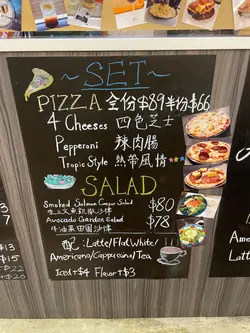 ~SET~
PIZZA 全份$89 半份$66
4 Cheeses 四色芝士
Pepperoni 辣肉腸
Tropic Style 熱帶風情
SALAD
Smoked Salmon Caesar Salad $80
Avocado Garden Salad $78
牛油果田園沙律
配: Latte/Flat White/
Americano/Cappuccino/Tea
Iced+$4 Flavor+$3